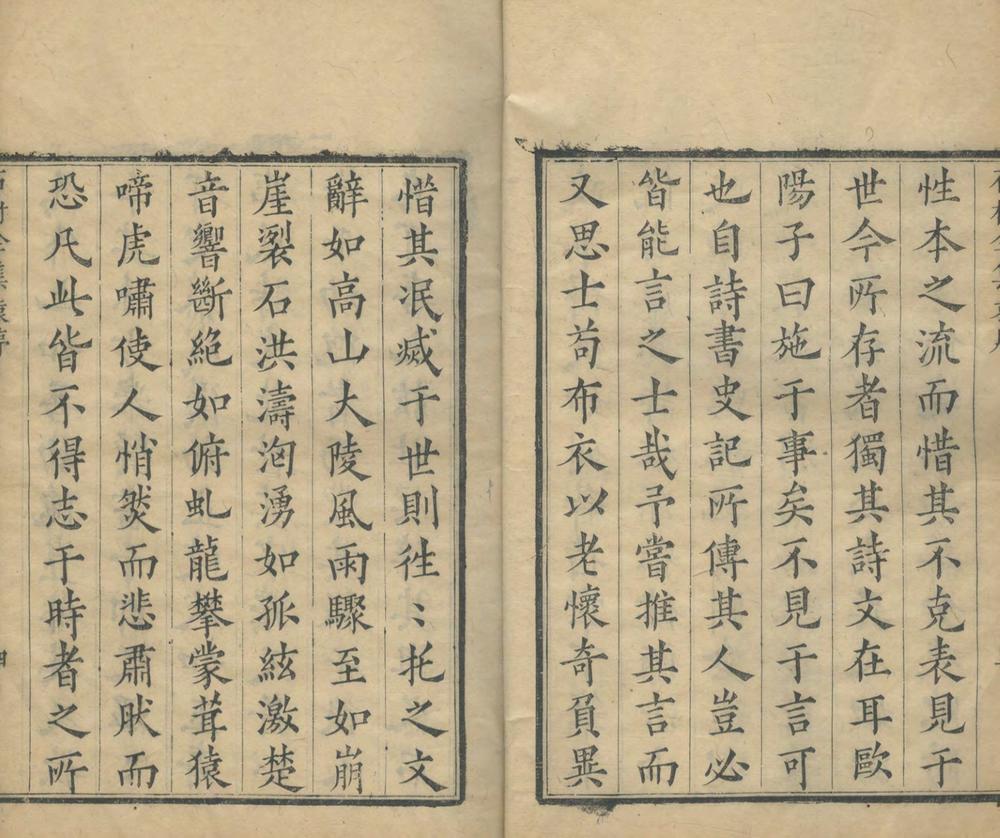 性本之流而惜其不克表見于
世今所存者獨其詩文在耳歐
陽子曰施于事矣不見于言可
也自詩書史記所傳其人豈必
皆能言之士哉予嘗推其言而
又思士茍布衣以老懷奇負異
惜其泯滅于世則徃〻托之文
辭如高山大陵風雨驟至如崩
崖裂石洪濤洶湧如孤絃激楚
音響斷絶如俯虬龍攀蒙茸猿
啼虎嘯使人悄然而悲肅肰而
恐凡此皆不得志于時者之所